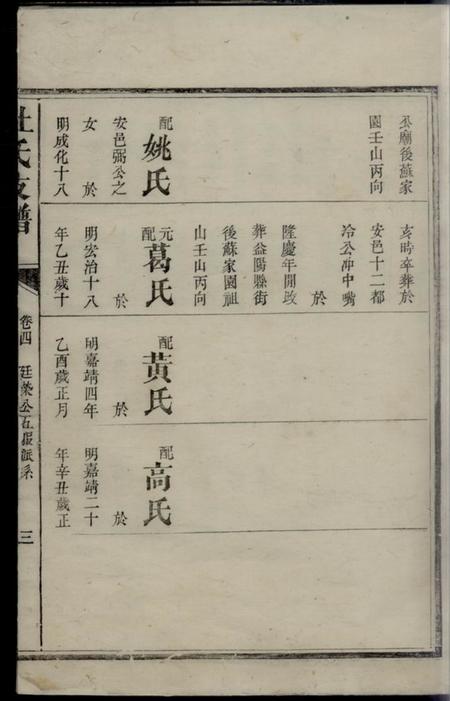 公廟後蘇家
園壬山丙向
配
姚氏
安邑弼公之
女於
明成化十八
亥時卒葬於
安邑十二都
冷公冲中嘴
於
隆慶年間改
葬益陽縣街
後蘇家園祖
山壬山丙向
元配
葛氏
於
明宏治十八
年乙丑歲十
配
黃氏
於
明嘉靖四年
乙酉歲正月
配
高氏
於
明嘉靖二十
年辛丑歲正
杜氏支譜
卷四
廷榮公五服派系
三